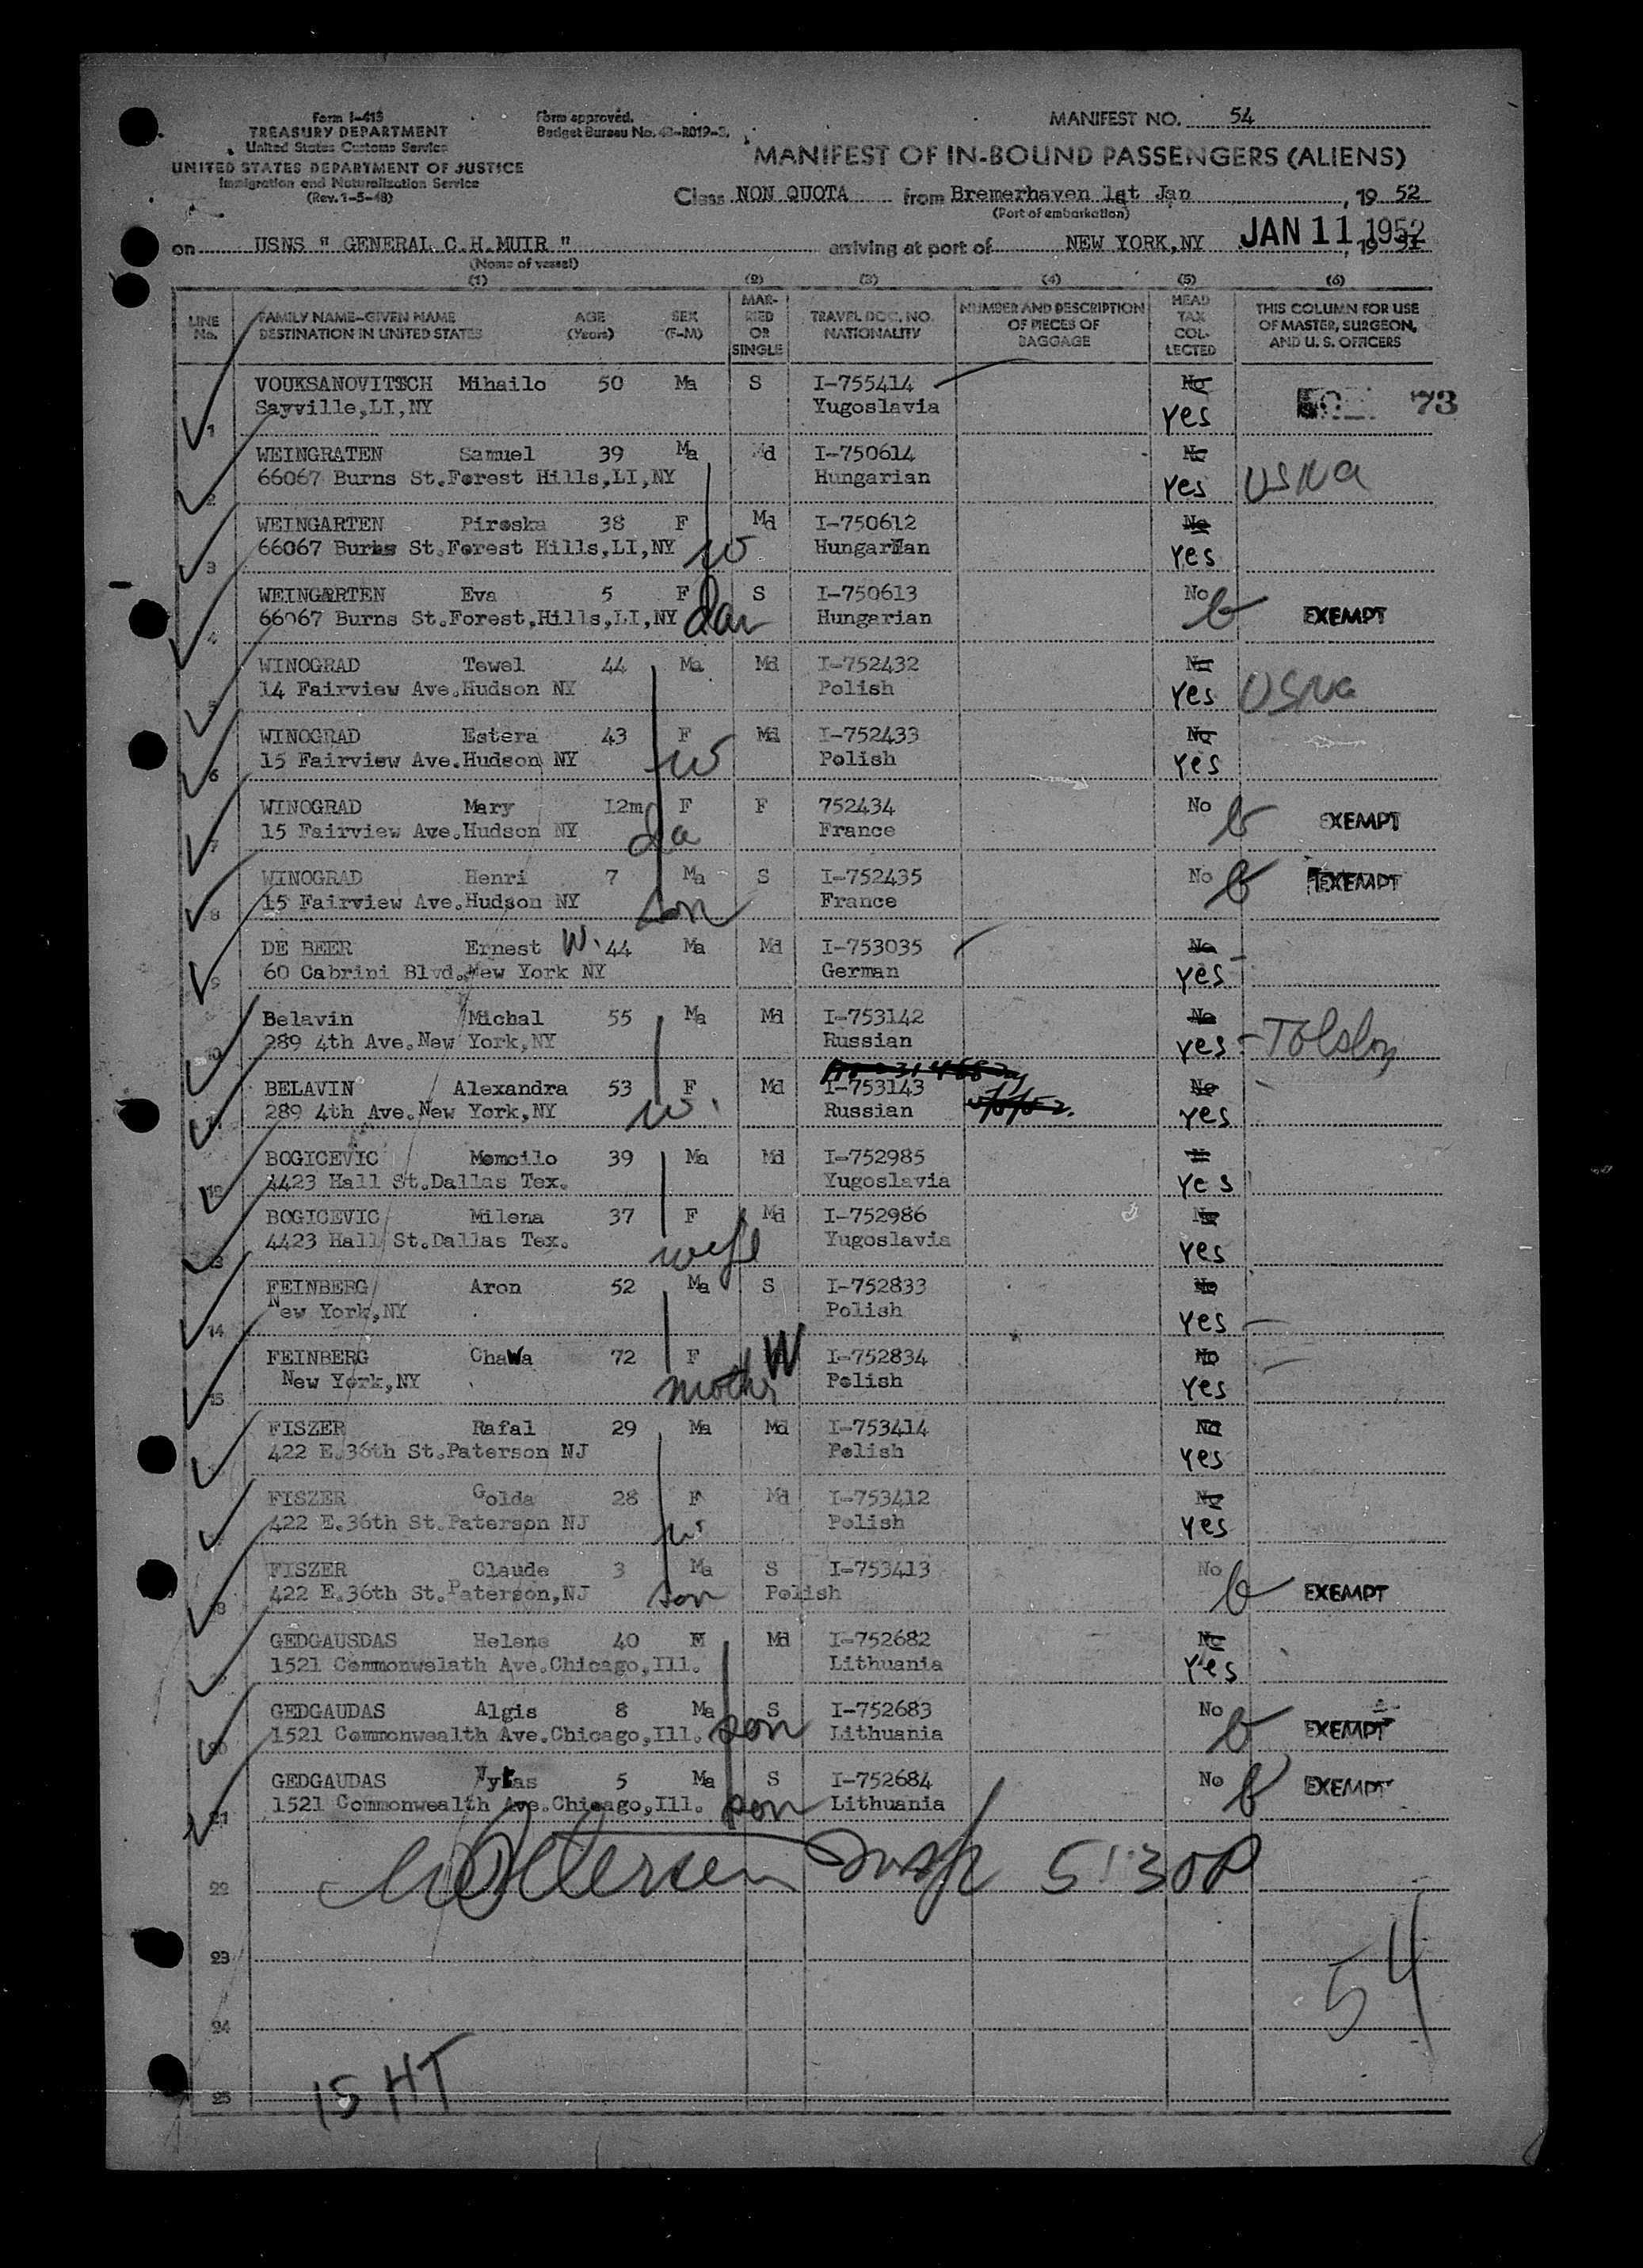 Form I-418
TREASURY DEPARTMENT
United States Customs Service
UNITED STATES DEPARTMENT OF JUSTICE
Immigration and Naturalization Service
(Rev. 1-5-48)
Form approved.
Budget Bureau No. 43-R019-3.
MANIFEST NO. 54
MANIFEST OF IN-BOUND PASSENGERS (ALIENS)
Class NON QUOTA from Bremerhaven 1st Jan , 19 52
(Port of embarkation)
on USNS " GENERAL C.H.MUIR " arriving at port of NEW YORK,NY JAN 11 1952 , 19
(Name of vessel)
(1) (2) (3) (4) (5) (6)
LINE No. FAMILY NAME-GIVEN NAME DESTINATION IN UNITED STATES AGE (Years) SEX (F-M) MARRIED OR SINGLE TRAVEL DOC. NO. NATIONALITY NUMBER AND DESCRIPTION OF PIECES OF BAGGAGE HEAD TAX COLLECTED THIS COLUMN FOR USE OF MASTER, SURGEON, AND U. S. OFFICERS
VOUKSANOVITSCH Mihailo 50 Ma S I-755414 No 73
1 Sayville,LI,NY Yugoslavia Yes
WEINGRATEN Samuel 39 Ma Md I-750614 No
2 66067 Burns St.Forest Hills,LI,NY Hungarian Yes USNa
WEINGARTEN Piroska 38 F Md I-750612 No
3 66067 Burns St.Forest Hills,LI,NY W Hungarian Yes
WEINGARTEN Eva 5 F S I-750613 No
4 66067 Burns St.Forest,Hills,LI,NY dau Hungarian EXEMPT
WINOGRAD Tewel 44 Ma Md I-752432 No
5 14 Fairview Ave.Hudson NY Polish Yes USNa
WINOGRAD Estera 43 F Md I-752433 No
6 15 Fairview Ave.Hudson NY W Polish Yes
WINOGRAD Mary 12m F F 752434 No
7 15 Fairview Ave.Hudson NY da France EXEMPT
WINOGRAD Henri 7 Ma S I-752435 No
8 15 Fairview Ave.Hudson NY son France EXEMPT
DE BEER Ernest W. 44 Ma Md I-753035 No
9 60 Cabrini Blvd.New York NY German Yes
Belavin Michal 55 Ma Md I-753142 No
10 289 4th Ave.New York,NY Russian Yes - Tolstoy
BELAVIN Alexandra 53 F Md I-753143 No
11 289 4th Ave.New York,NY W. Russian Yes
BOGICEVIC Momcilo 39 Ma Md I-752985
12 4423 Hall St.Dallas Tex. Yugoslavia Yes
BOGICEVIC Milena 37 F Md I-752986 No
13 4423 Hall St.Dallas Tex. wife Yugoslavia Yes
FEINBERG Aron 52 Ma S I-752833 No
14 New York,NY Polish Yes
FEINBERG Chawa 72 F W I-752834 No
15 New York,NY mother Polish Yes
FISZER Rafal 29 Ma Md I-753414 No
422 E.36th St.Paterson NJ Polish Yes
FISZER Golda 28 F Md I-753412 No
422 E.36th St.Paterson NJ W Polish Yes
FISZER Claude 3 Ma S I-753413 No
18 422 E.36th St.Paterson,NJ son Polish EXEMPT
GEDGAUSDAS Helene 40 F Md I-752682 No
1521 Commonwelath Ave.Chicago,Ill. Lithuania Yes
GEDGAUDAS Algis 8 Ma S I-752683 No
20 1521 Commonwealth Ave.Chicago,Ill. son Lithuania EXEMPT
GEDGAUDAS 5 Ma S I-752684 No
21 1521 Commonwealth Ave.Chicago,Ill. son Lithuania EXEMPT
22 Insp 5:30P
23
54
24
15 HT
25